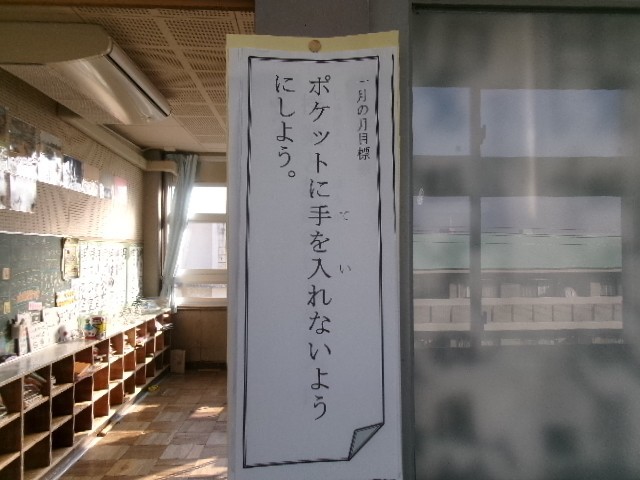 一月の月目標
ポケットに手を入れないよう
にしよう。
て
い